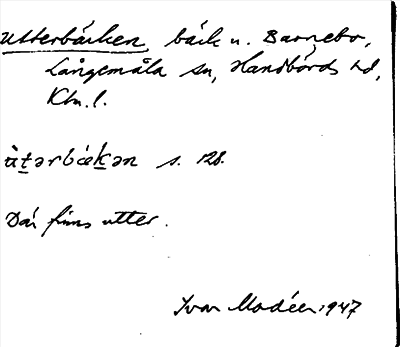 Utterbäcken, bäck n. Barnebo,
Långemåla sn, Handbörds hd,
Klm. l.
ù̀tərbäkən s. 128.
Där finns utter.
Ivar Modéer 1947